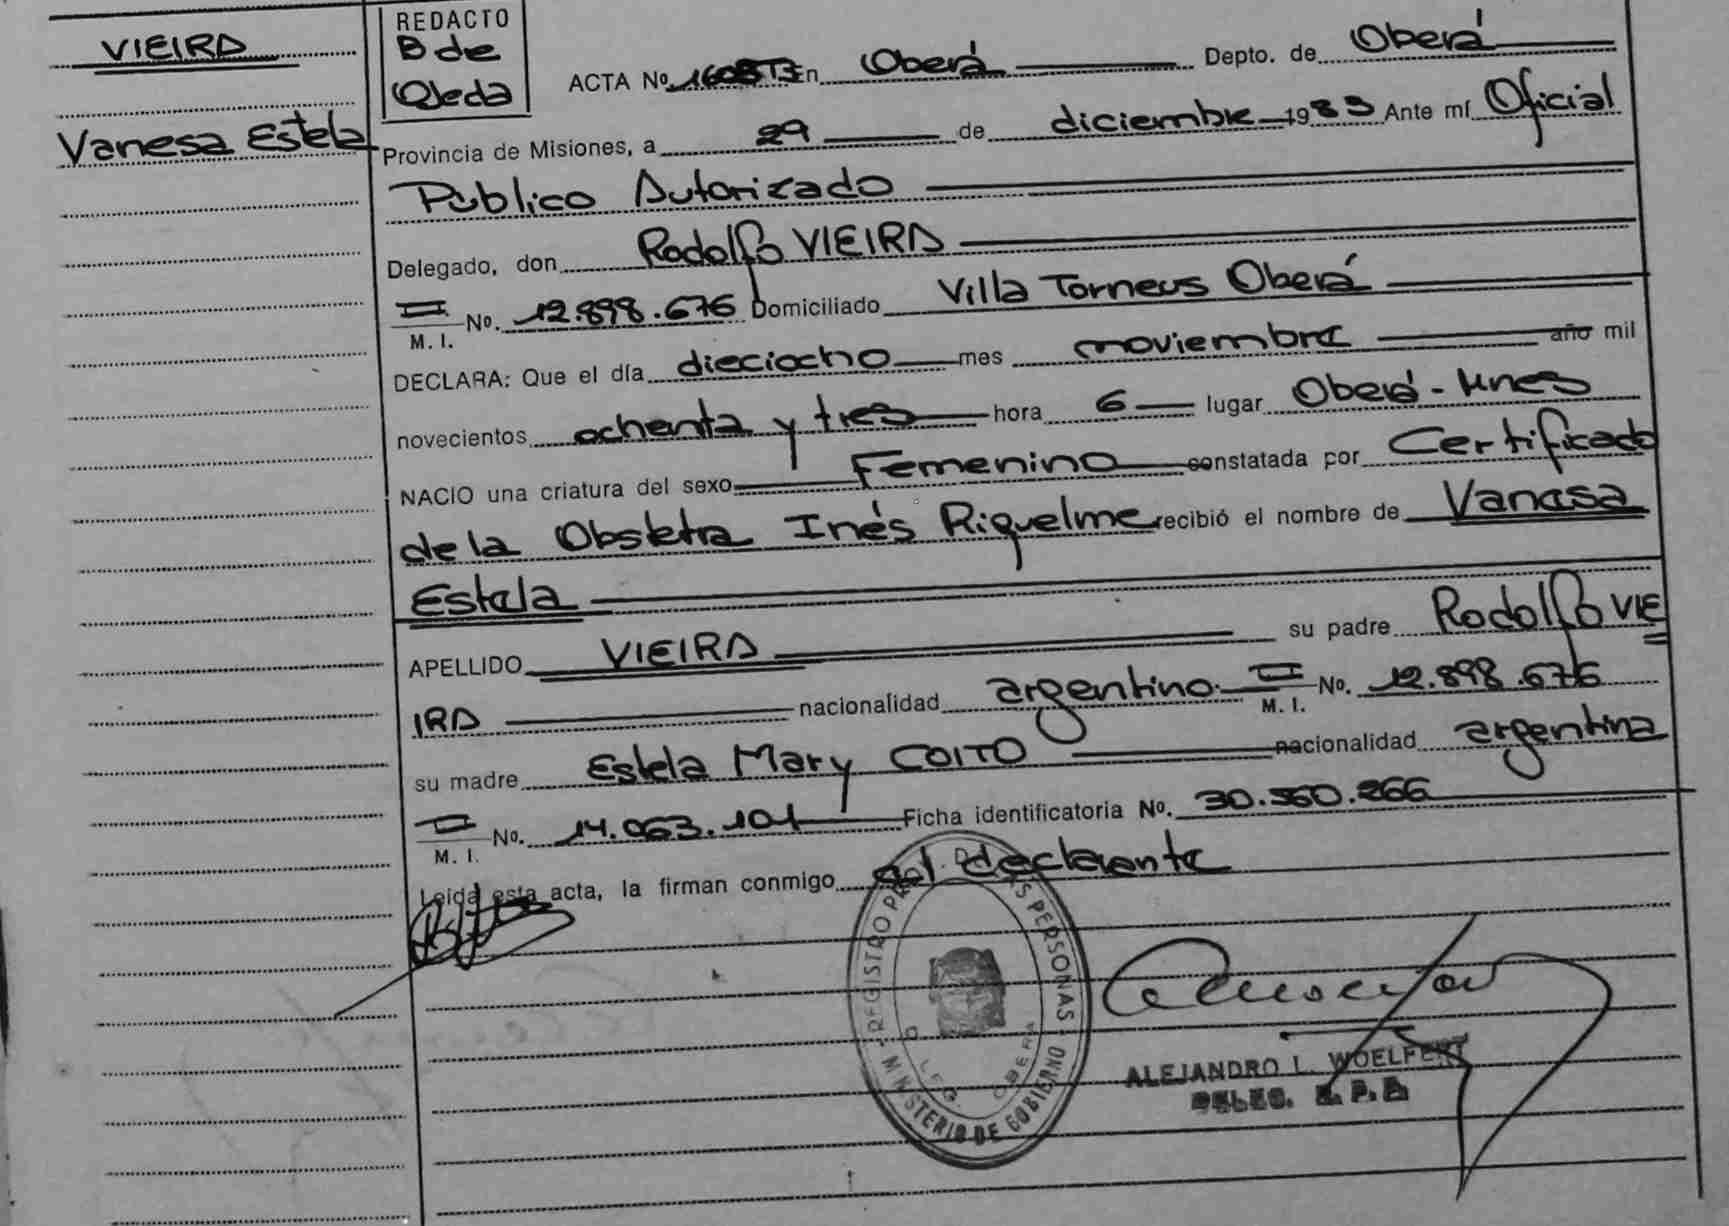 VIEIRA
Vanesa Estela
REDACTO
B de
Ojeda
ACTA No. 1608T3 En Oberá Depto. de Oberá
Provincia de Misiones, a 29 de diciembre 1983 Ante mí Oficial
Público Autorizado
Delegado, don Rodolfo VIEIRA
M. I. No. 12.898.676 Domiciliado Villa Torneus Oberá
DECLARA: Que el día dieciocho mes noviembre año mil
novecientos ochenta y tres hora 6 lugar Oberá - Mnes
NACIO una criatura del sexo Femenino constatada por Certificado
de la Obstetra Inés Riquelme recibió el nombre de Vanesa
Estela
APELLIDO VIEIRA su padre Rodolfo VIE
IRA nacionalidad argentino. M. I. No. 12.898.676
su madre Estela Mary COITO nacionalidad argentina
M. I. No. 14.063.101 Ficha identificatoria No. 30.360.266
Leída esta acta, la firman conmigo el declarante
REGISTRO PERSONAS
MINISTERIO DE GOBIERNO
OBERA
ALEJANDRO L. WOELFERT
DELEG. R. P. P.